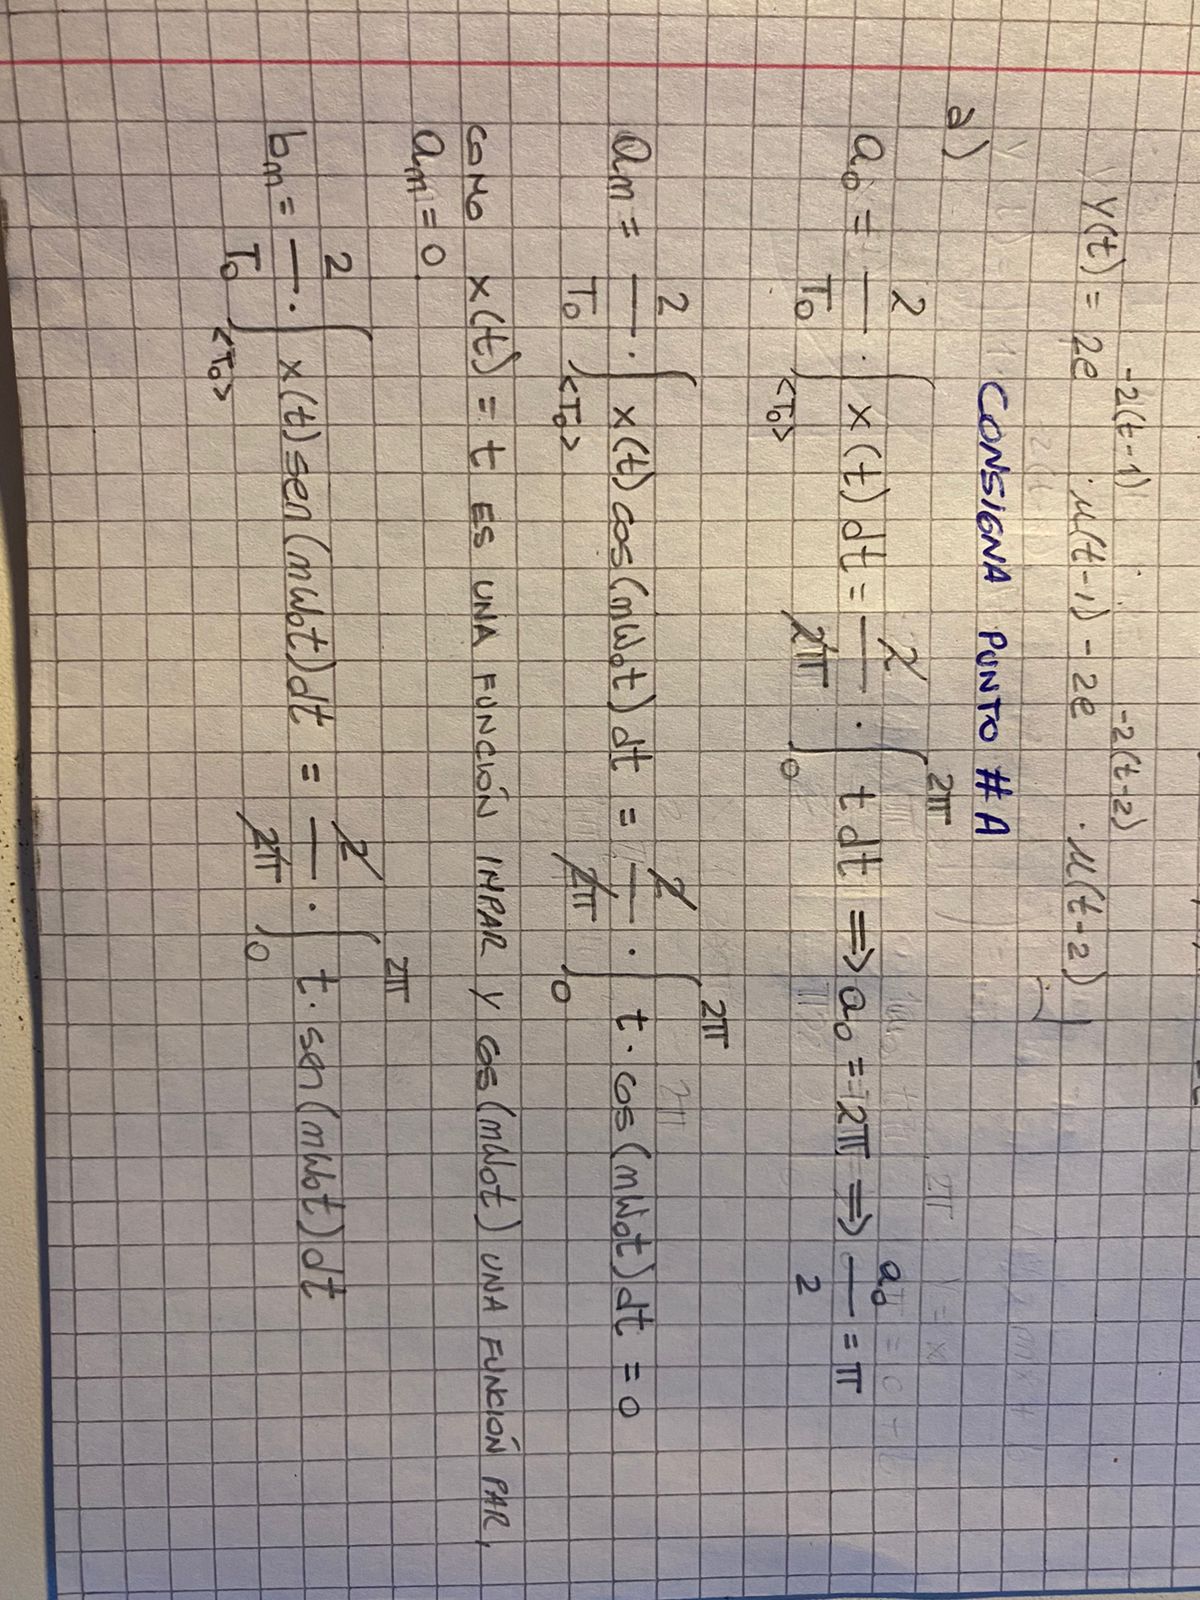 y(t) = 2e^{-2(t-1)} · μ(t-1) - 2e^{-2(t-2)} · μ(t-2)
CONSIGNA PUNTO #A
a)
a₀ = 2/T₀ · ∫_{<T₀>} x(t) dt = 2/2π · ∫₀^{2π} t dt ⟹ a₀ = 2π ⟹ a₀/2 = π
am = 2/T₀ · ∫_{<T₀>} x(t) cos(mω₀t) dt = 2/2π · ∫₀^{2π} t · cos(mω₀t) dt = 0
COMO x(t) = t ES UNA FUNCIÓN IMPAR Y cos(mω₀t) UNA FUNCIÓN PAR,
am = 0
bm = 2/T₀ · ∫_{<T₀>} x(t) sen(mω₀t) dt = 2/2π · ∫₀^{2π} t · sen(mω₀t) dt